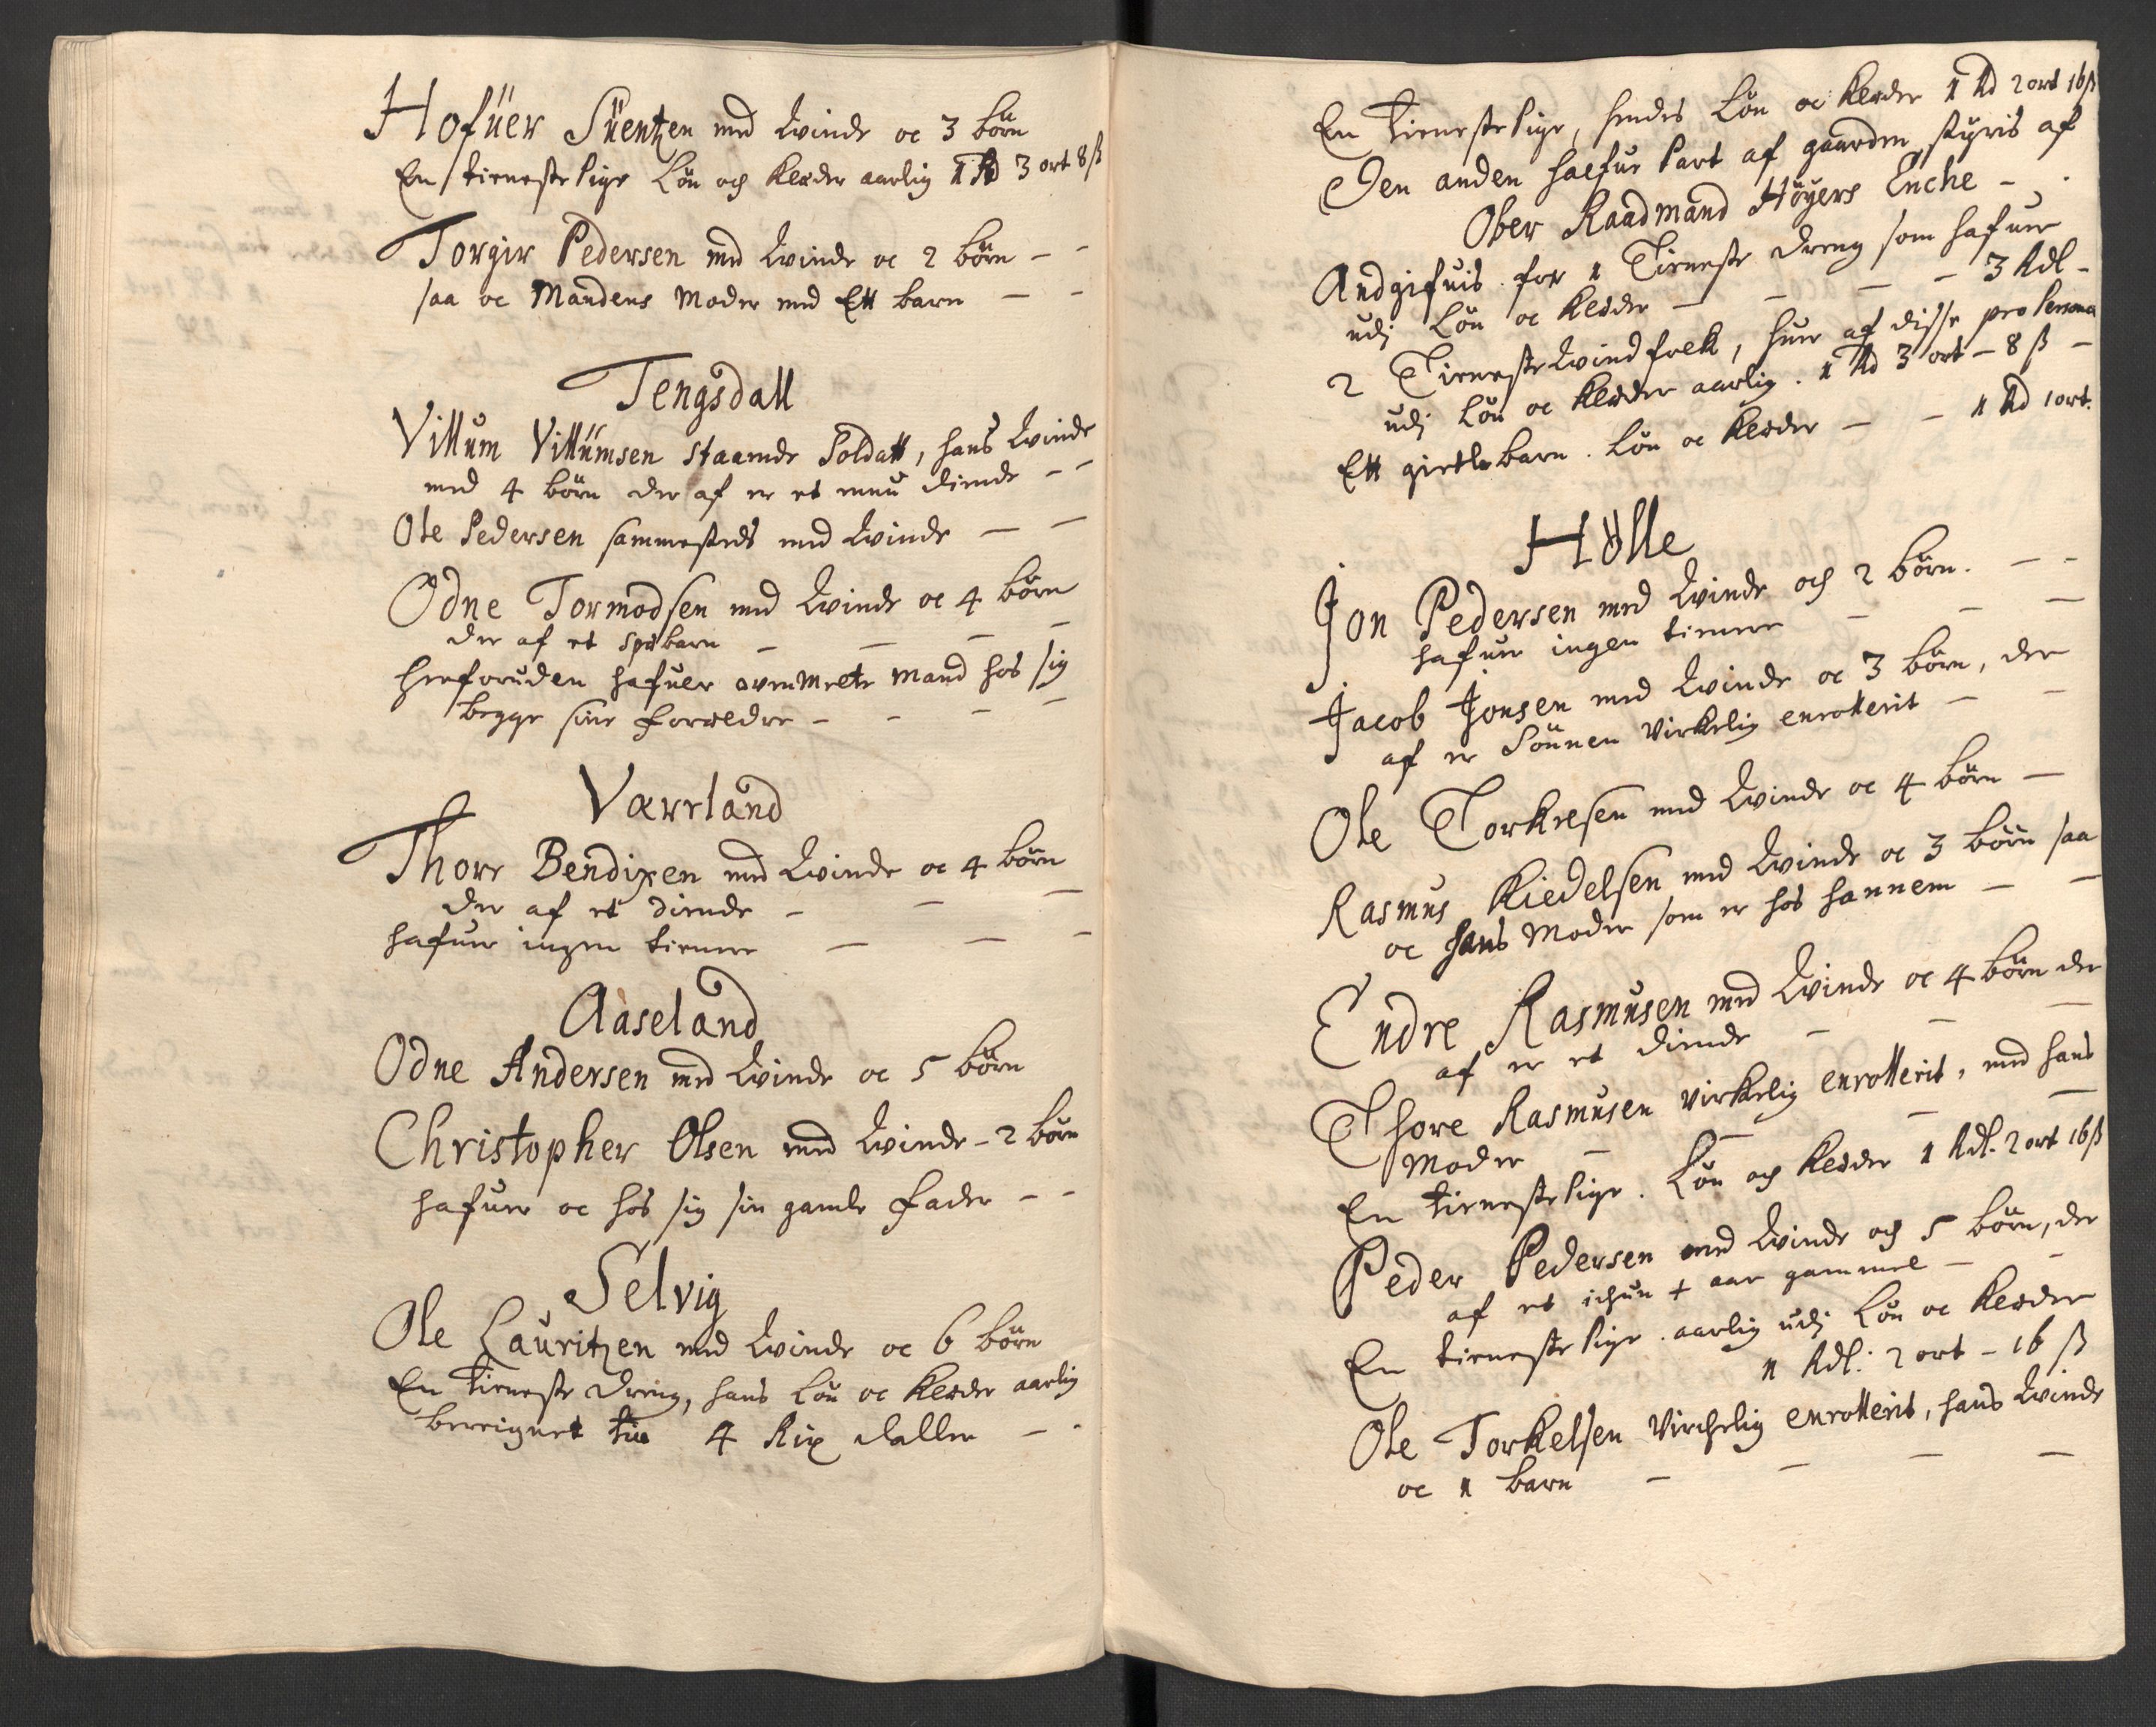 Hofüer Süentzen med Qvinde oc 3 børn
En tieneste Pige Løn och Klæder aarlig 1 Rd 3 ort 8 ß
Torgier Pedersen med Qvinde oc 2 børn - -
saa oc Mandens Moder med Ett barn - -
Tengsdall
Villum Villumsen staaende Soldatt, hans Qvinde
med 4 børn der af er et ennu diende - -
Ole Pedersen sammesteds med Qvinde - -
Odne Tormodsen med Qvinde oc 4 børn
der af et spæbarn - - - -
herforuden hafuer ovenmelte Mand hos sig
begge sine forældre - - - -
Værrland
Thore Bendixen med Qvinde oc 4 børn
der af et diende - - -
hafuer ingen tienere - - -
Aaseland
Odne Andersen med Qvinde oc 5 børn
Christopher Olsen med Qvinde - 2 børn
hafuer oc hos sig sin gamle fader - -
Selvig
Ole Lauritzen med Qvinde oc 6 børn
En tieneste dreng, hans Løn oc Klæder aarlig
beregnet til 4 Rix daller - -
En tieneste Pige, hendes Løn oc Klæder 1 Rd 2 ort 16 ß
Den anden halfue Part af gaarden styris af
Ober Raadmand Höyers Enche -
Andgifuis for 1 Tieneste dreng som hafuer
udj Løn oc Klæder - - - - 3 Rdl -
2 Tieneste Qvindfolk, huer af disse pro Persona
udj Løn oc Klæder aarlig . 1 Rd 3 ort - 8 ß -
Ett giettebarn . Løn oc Klæder - - 1 Rd 1 ort.
Hölle
Jon Pedersen med Qvinde och 2 børn. - -
hafuer ingen tienere - - -
Jacob Jonsen med Qvinde oc 3 børn, der
af er Sønnen Virkelig enrollerit - -
Ole Torkiesen med Qvinde oc 4 børn -
Rasmus Kiedelsen med Qvinde oc 3 børn saa
oc hans Moder som er hos hannem - -
Endre Rasmusen med Qvinde oc 4 børn der
af er et diende - - -
Thore Rasmusen virkelig enrollerit, med hans
Moder - - - -
En tieneste Pige . Løn och Klæder 1 Rdl. 2 ort 16 ß
Peder Pedersen med Qvinde och 5 børn, der
af et ichun + aar gammel - -
En tieneste Pige . aarlig udj Løn oc Klæder
1 Rdl: 2 ort - 16 ß
Ole Torkelsen Virchelig enrollerit, hans Qvinde
oc 1 barn - - - -